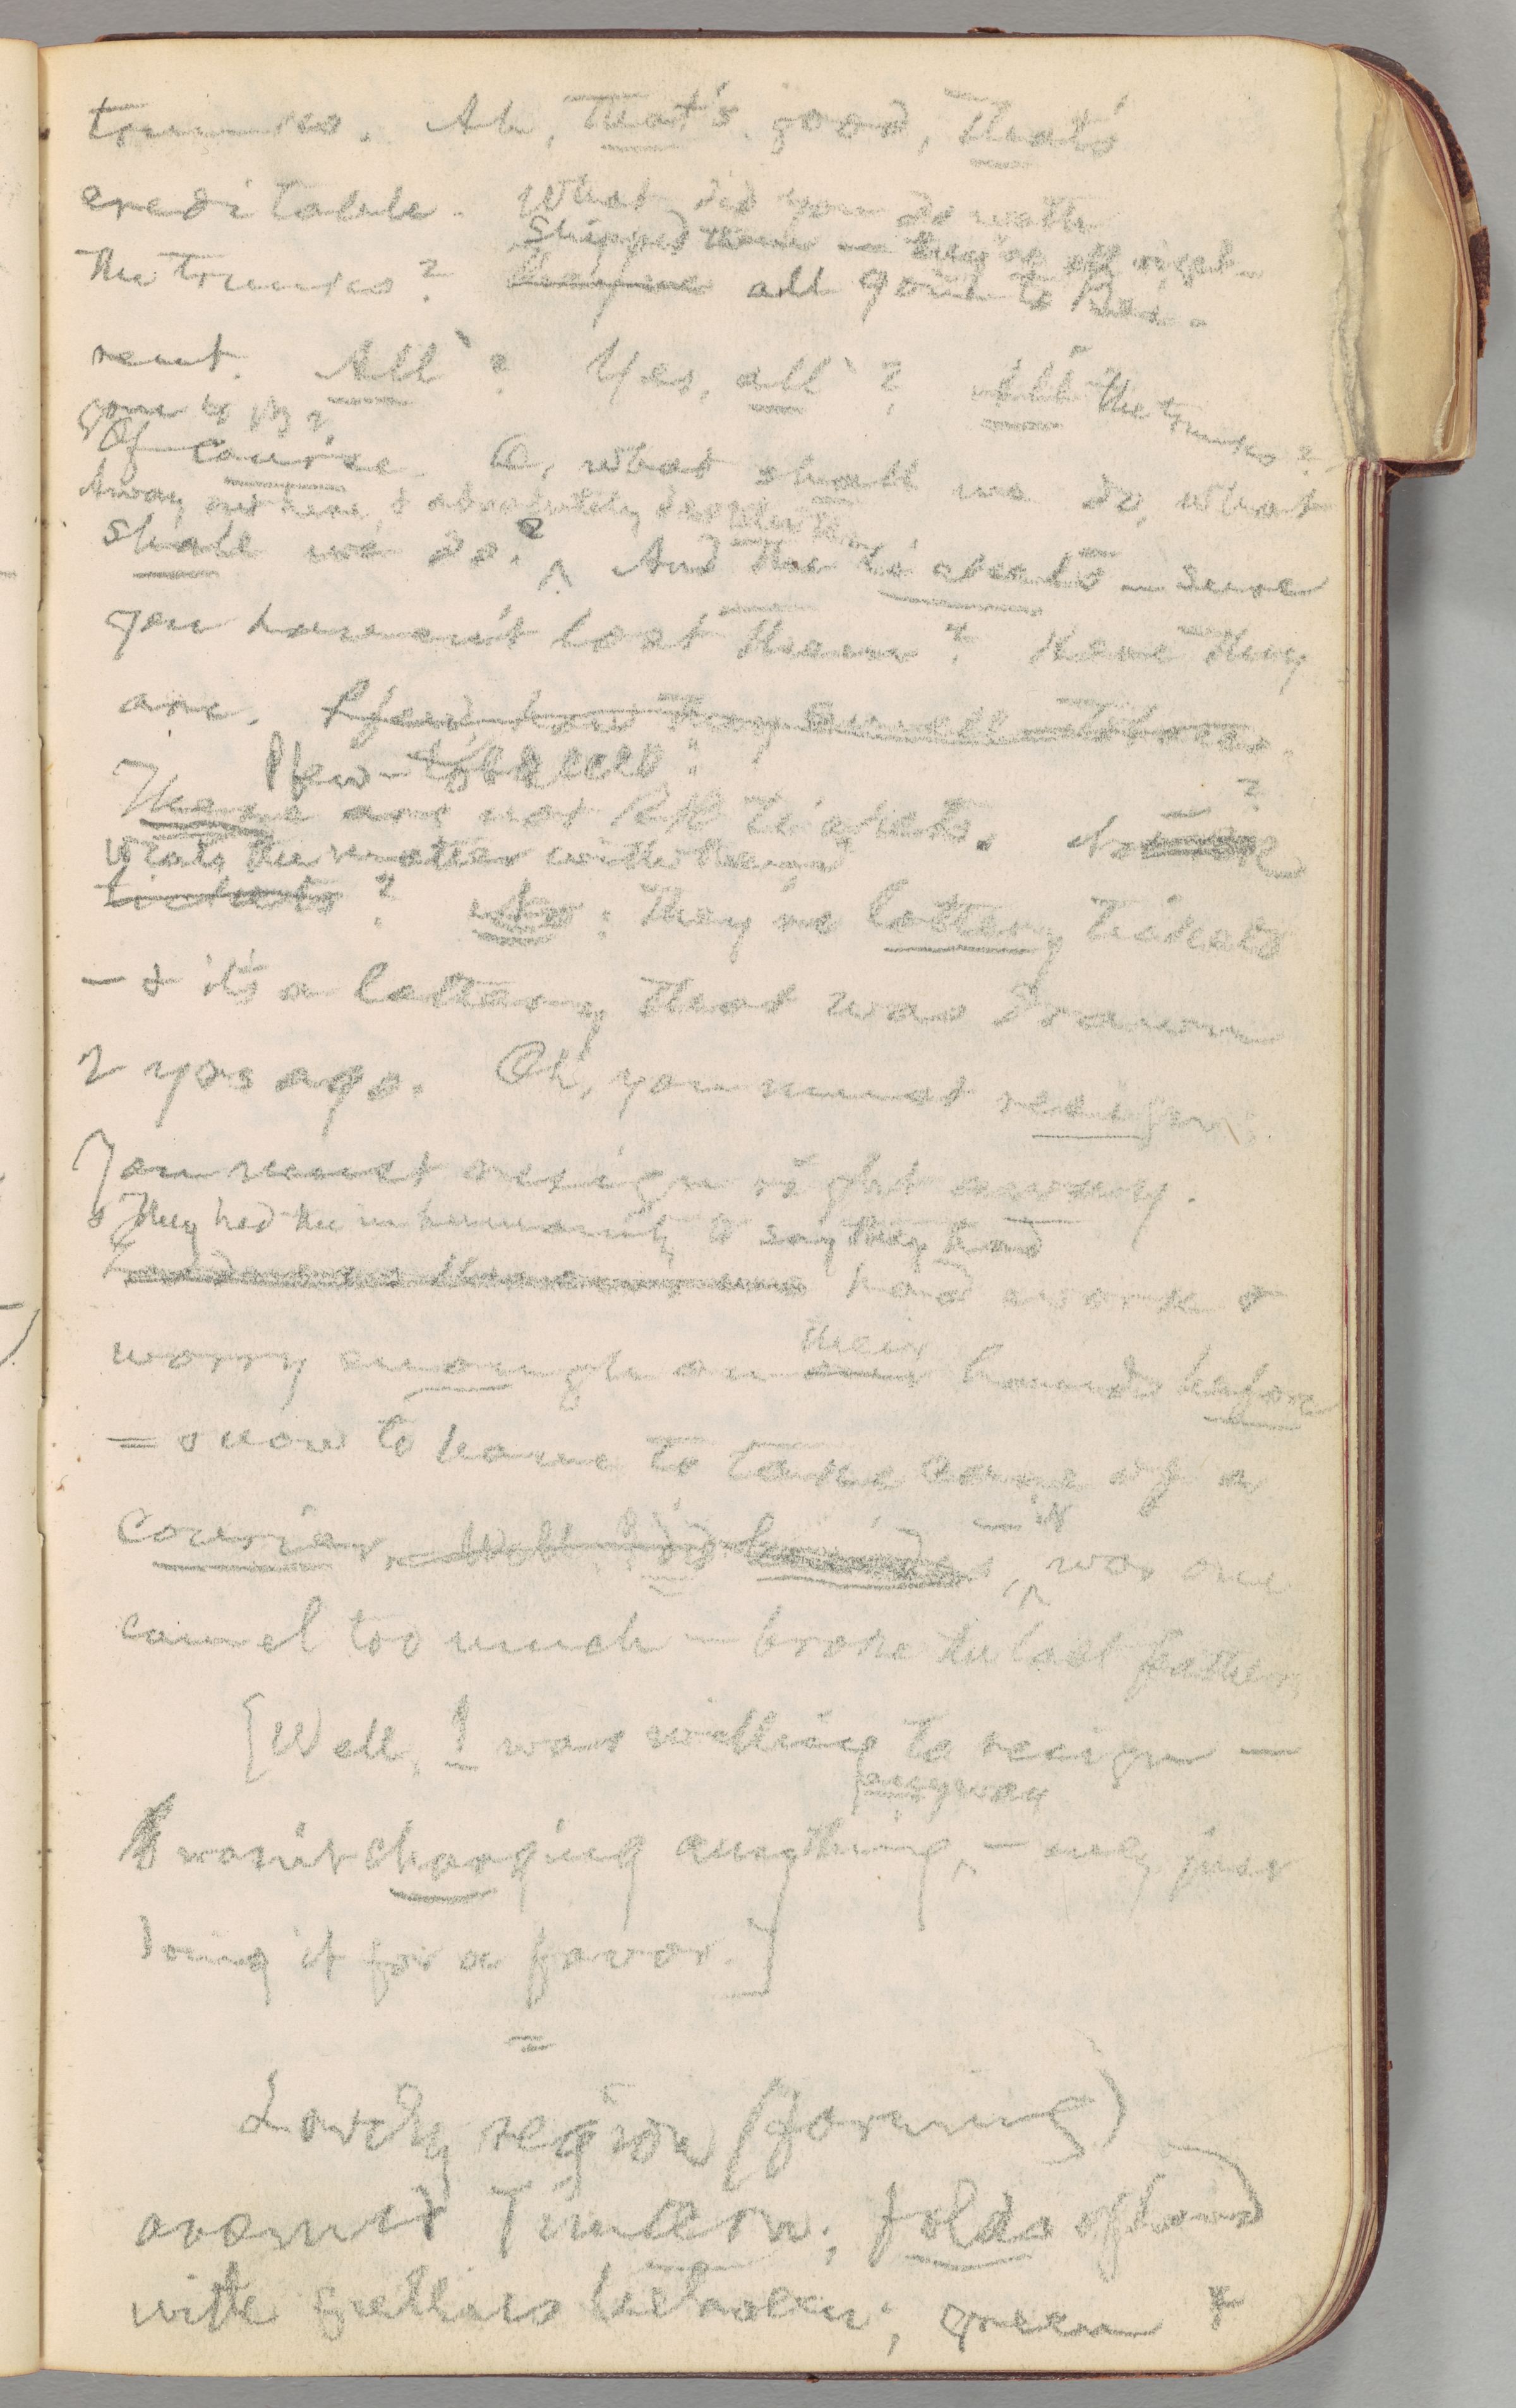 trunks. Ah, that's good, that's
creditable. What did you do with
Shipped them — they're all right—
the trunks? they're all gone to Bai-
reut. All? Yes, all? All the trunks?
gone to B?
Of course. O, what shall we do, what
Away out here, & absolutely
shall we do? ^ And the tickets — sure
you haven't lost them? Here they
are. Pfew, how they smell tobacco.
Pfew—tobacco!
These are not RR tickets. Not RR
What's the matter with them?
tickets? No: they're lottery tickets
— & it's a lottery that was drawn
2 yrs ago. Oh, you must resign;
You must resign right away.
& They had the inhumanity to say they had
hard work &
worry enough on our their hands before
= & now to have to take care of a
courier. Well I did — it ^ was one
camel too much — broke the last feather.
[Well, I was willing to resign —
anyway
I wasn't charging anything, ^ — only just
doing it for a favor.]
=
Lovely region (farming)
around Timaru; folds of land
with gullies between; green &